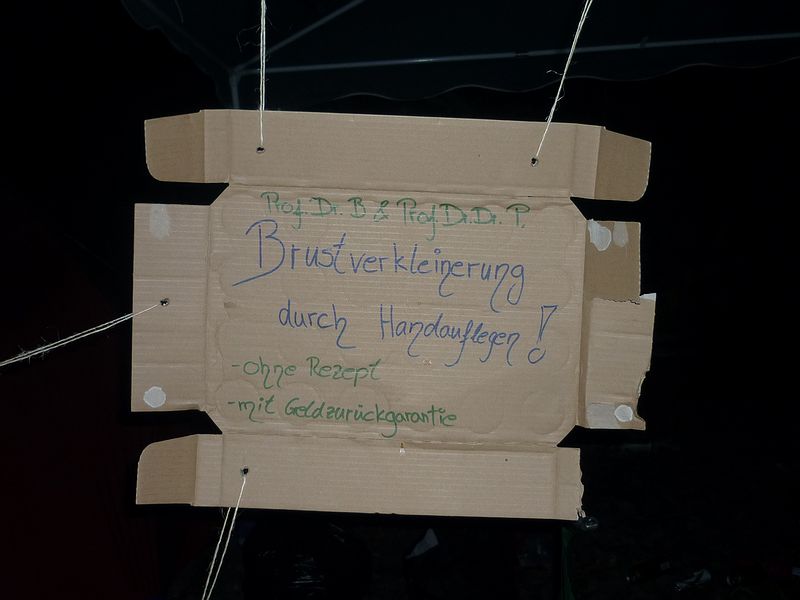 Prof. Dr. B & Prof. Dr. Dr. P.
Brustverkleinerung
durch Handauflegen!
- ohne Rezept
- mit Geldzurückgarantie